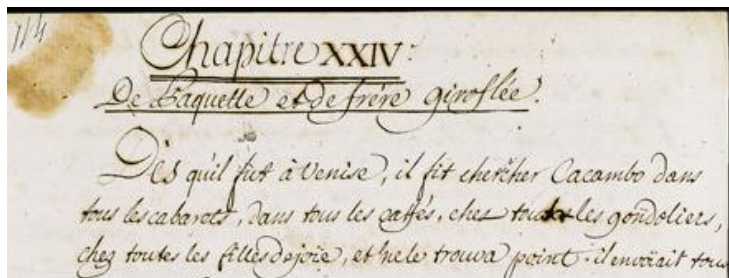 114
Chapitre XXIV.
De Paquette et de frére Giroflée.
Dès qu'il fut à Venise, il fit chercher Cacambo dans
tous les cabarets, dans tous les caffés, chez toutes les gondoliers,
chez toutes les filles de joie, et ne le trouva point. il envoiait tous